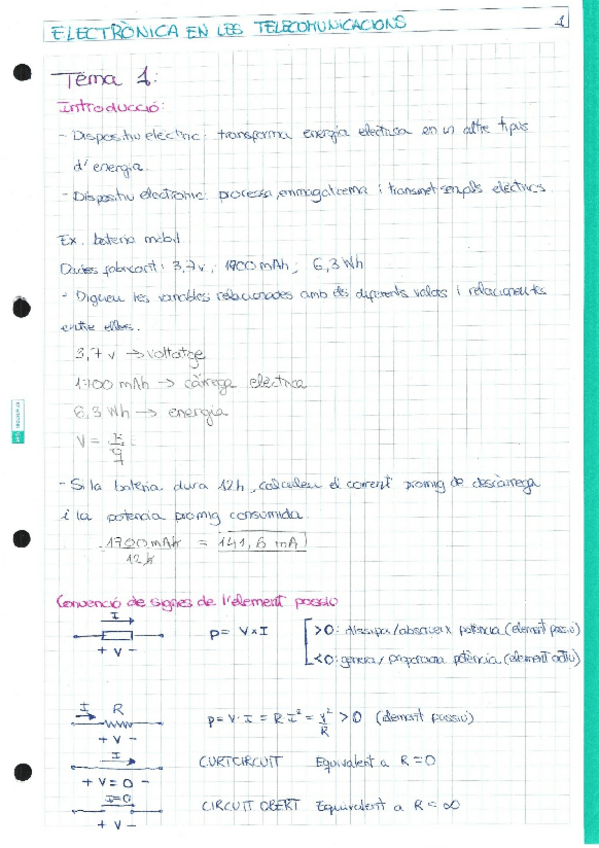 ELECTRÒNICA EN LES TELECOMUNICACIONS 1
Tema 1:
Introducció:
- Dispositiu elèctric: transforma energia elèctrica en un altre tipus
d'energia.
- Dispositiu electrònic: processa, emmagatzema i transmet senyals elèctrics.
Ex. bateria mòbil
Dades fabricant: 3,7 v; 1700 mAh; 6,3 Wh
- Digueu les variables relacionades amb els diferents valors i relacioneu-les
entre elles.
3,7 v → voltatge
1700 mAh → càrrega elèctrica
6,3 Wh → energia
V = E/q
- Si la bateria dura 12h, calculeu el corrent promig de descàrrega
i la potencia promig consumida.
1700 mAh / 12 h = 141,6 mA
Convenció de signes de l'element passiu
I
+ V -
p = V x I
>0: dissipa/absorveix potència (element passiu)
<0: genera/proporciona potència (element actiu)
I R
+ V -
p = V·I = R I² = V²/R > 0 (element passiu)
I
+ V = 0 -
CURTCIRCUIT Equivalent a R = 0
I=0
+ V -
CIRCUIT OBERT Equivalent a R = ∞